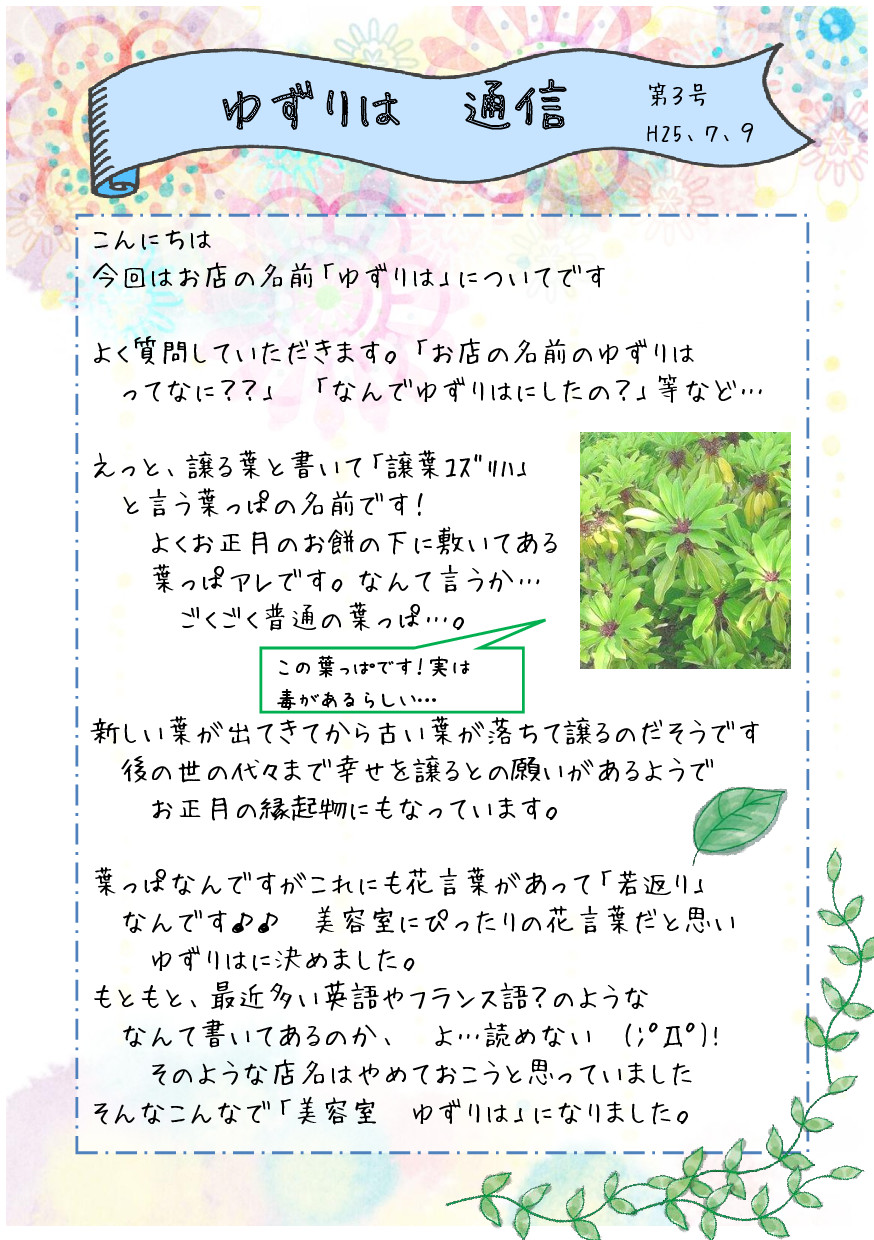 ゆずりは　通信
第3号
H25、7、9
こんにちは
今回はお店の名前「ゆずりは」についてです
よく質問していただきます。「お店の名前のゆずりは
ってなに??」　「なんでゆずりはにしたの?」等など…
えっと、譲る葉と書いて「譲葉ﾕｽﾞﾘﾊ」
と言う葉っぱの名前です!
よくお正月のお餅の下に敷いてある
葉っぱアレです。なんて言うか…
ごくごく普通の葉っぱ…。
この葉っぱです!実は
毒があるらしい…
新しい葉が出てきてから古い葉が落ちて譲るのだそうです
後の世の代々まで幸せを譲るとの願いがあるようで
お正月の縁起物にもなっています。
葉っぱなんですがこれにも花言葉があって「若返り」
なんです♪♪　美容室にぴったりの花言葉だと思い
ゆずりはに決めました。
もともと、最近多い英語やフランス語?のような
なんて書いてあるのか、　よ…読めない　(;ﾟДﾟ)!
そのような店名はやめておこうと思っていました
そんなこんなで「美容室　ゆずりは」になりました。